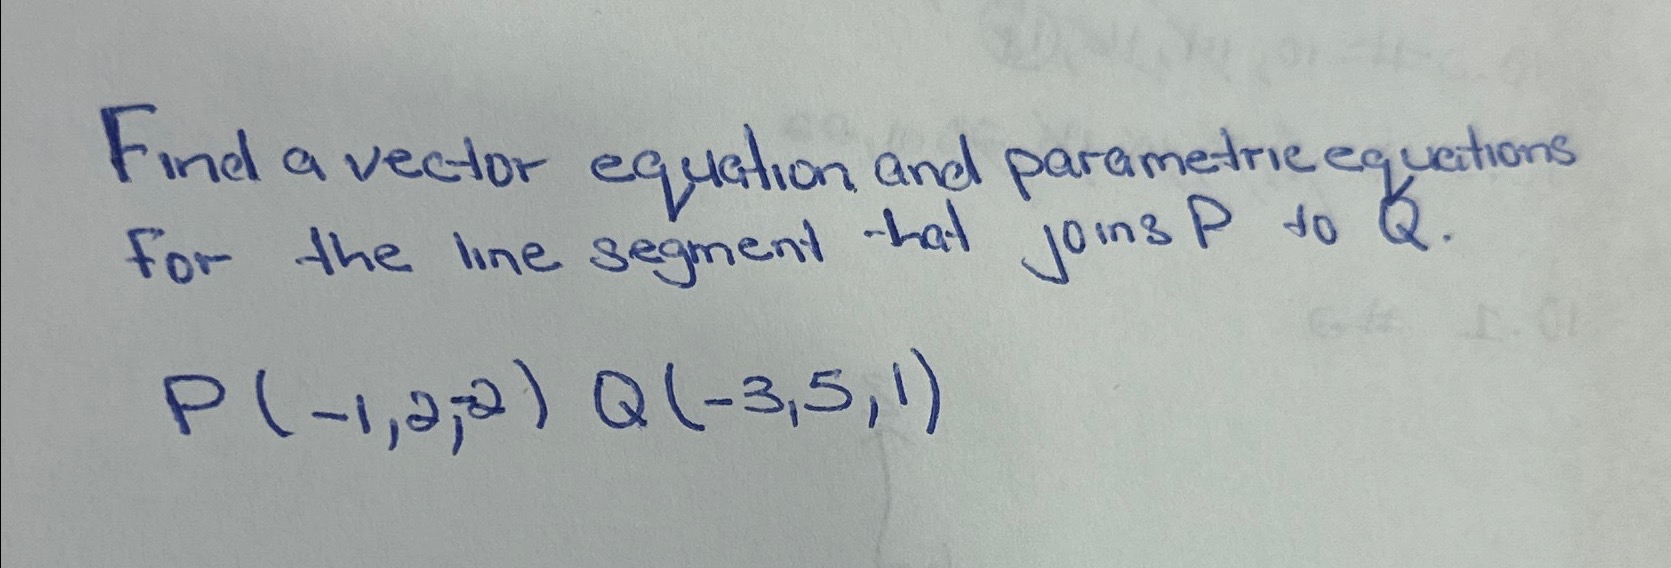 Find a vector equation and parametric equations
for the line segment that joins P to Q.
P(-1,2,-2) Q(-3,5,1)